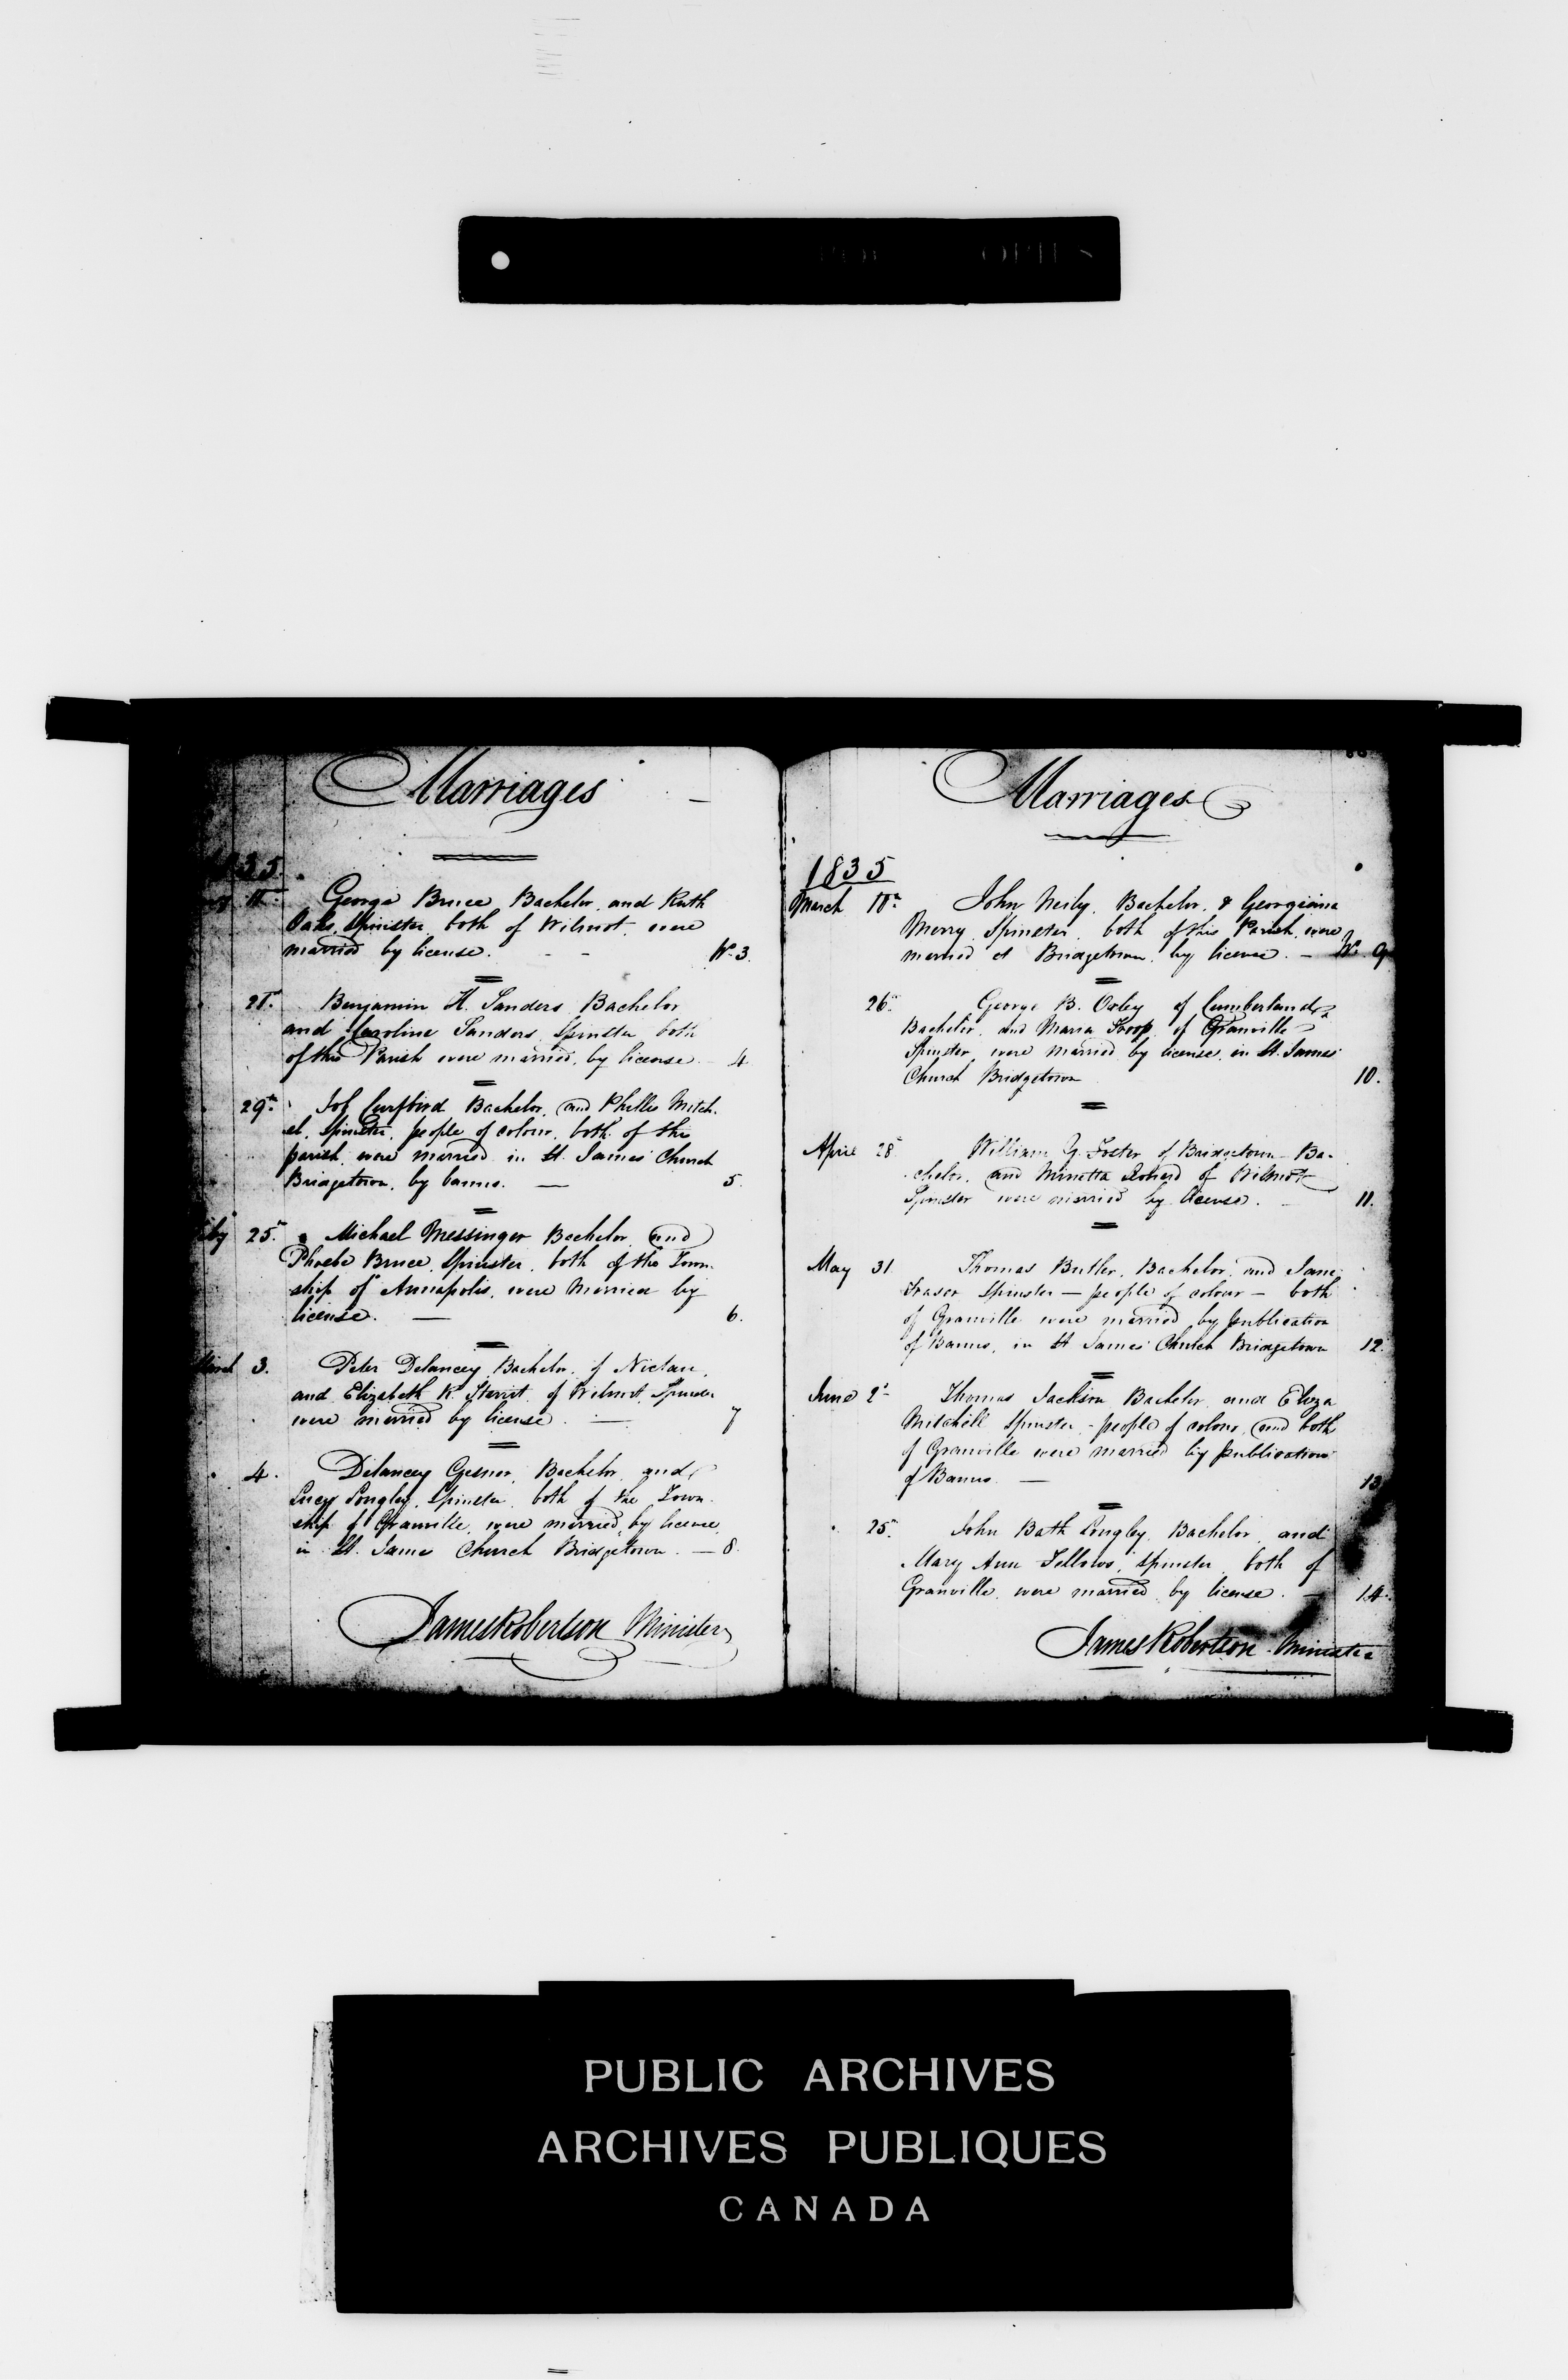 Marriages
George Bruce, Bachelor, and Ruth
Oaks, Spinster, both of Wilmot, were
married by license. - - No. 3.
21st Benjamin H. Sanders Bachelor
and Caroline Sanders, Spinster both
of this Parish were married, by license. 4
29th Bachelor, and Phillis Mitch-
el, Spinster, people of colour, both of this
parish, were married in St. James' Church
Bridgetown, by banns. — 5.
25th Michael Messinger Bachelor, and
Phoebe Bruce, Spinster, both of the Town-
ship of Annapolis, were married by
license. — 6.
March 3. Peter Delancey, Bachelor, of Nictau,
and Elizabeth K. Starrit, of Wilmot, Spinster
were married by license. — 7
4. Delancey Gesner, Bachelor, and
Lucy Longley, Spinster, both of the Town-
ship of Granville, were married, by license,
in St. James Church Bridgetown. — 8.
James Robertson Minister
Marriages
1835
March John Neily, Bachelor, & Georgiana
Merry, Spinster, both of this Parish, were
married at Bridgetown, by license. — No. 9
26th George B. Oxley of Cumberland,
Bachelor, and Maria Troop, of Granville
Spinster, were married by license, in St. James'
Church Bridgetown 10.
April 28th William Y. Foster of Bridgetown Ba-
chelor, and Minetta of Wilmot
Spinster were married by license. - 11.
May 31. Thomas Butler, Bachelor, and Jane
Fraser Spinster — people of colour — both
of Granville were married by publication
of Banns, in St James' Church Bridgetown 12.
June 2d Thomas Jackson Bachelor and Eliza
Mitchell Spinster - people of colour, and both
of Granville were married by publication
of Banns — 13
25th John Bath Longley, Bachelor, and
Mary Ann Fellows, Spinster, both of
Granville, were married by license. — 14.
James Robertson Minister
PUBLIC ARCHIVES
ARCHIVES PUBLIQUES
CANADA